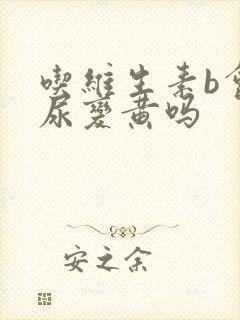 喫維生素b會
尿變黃吗
安之余